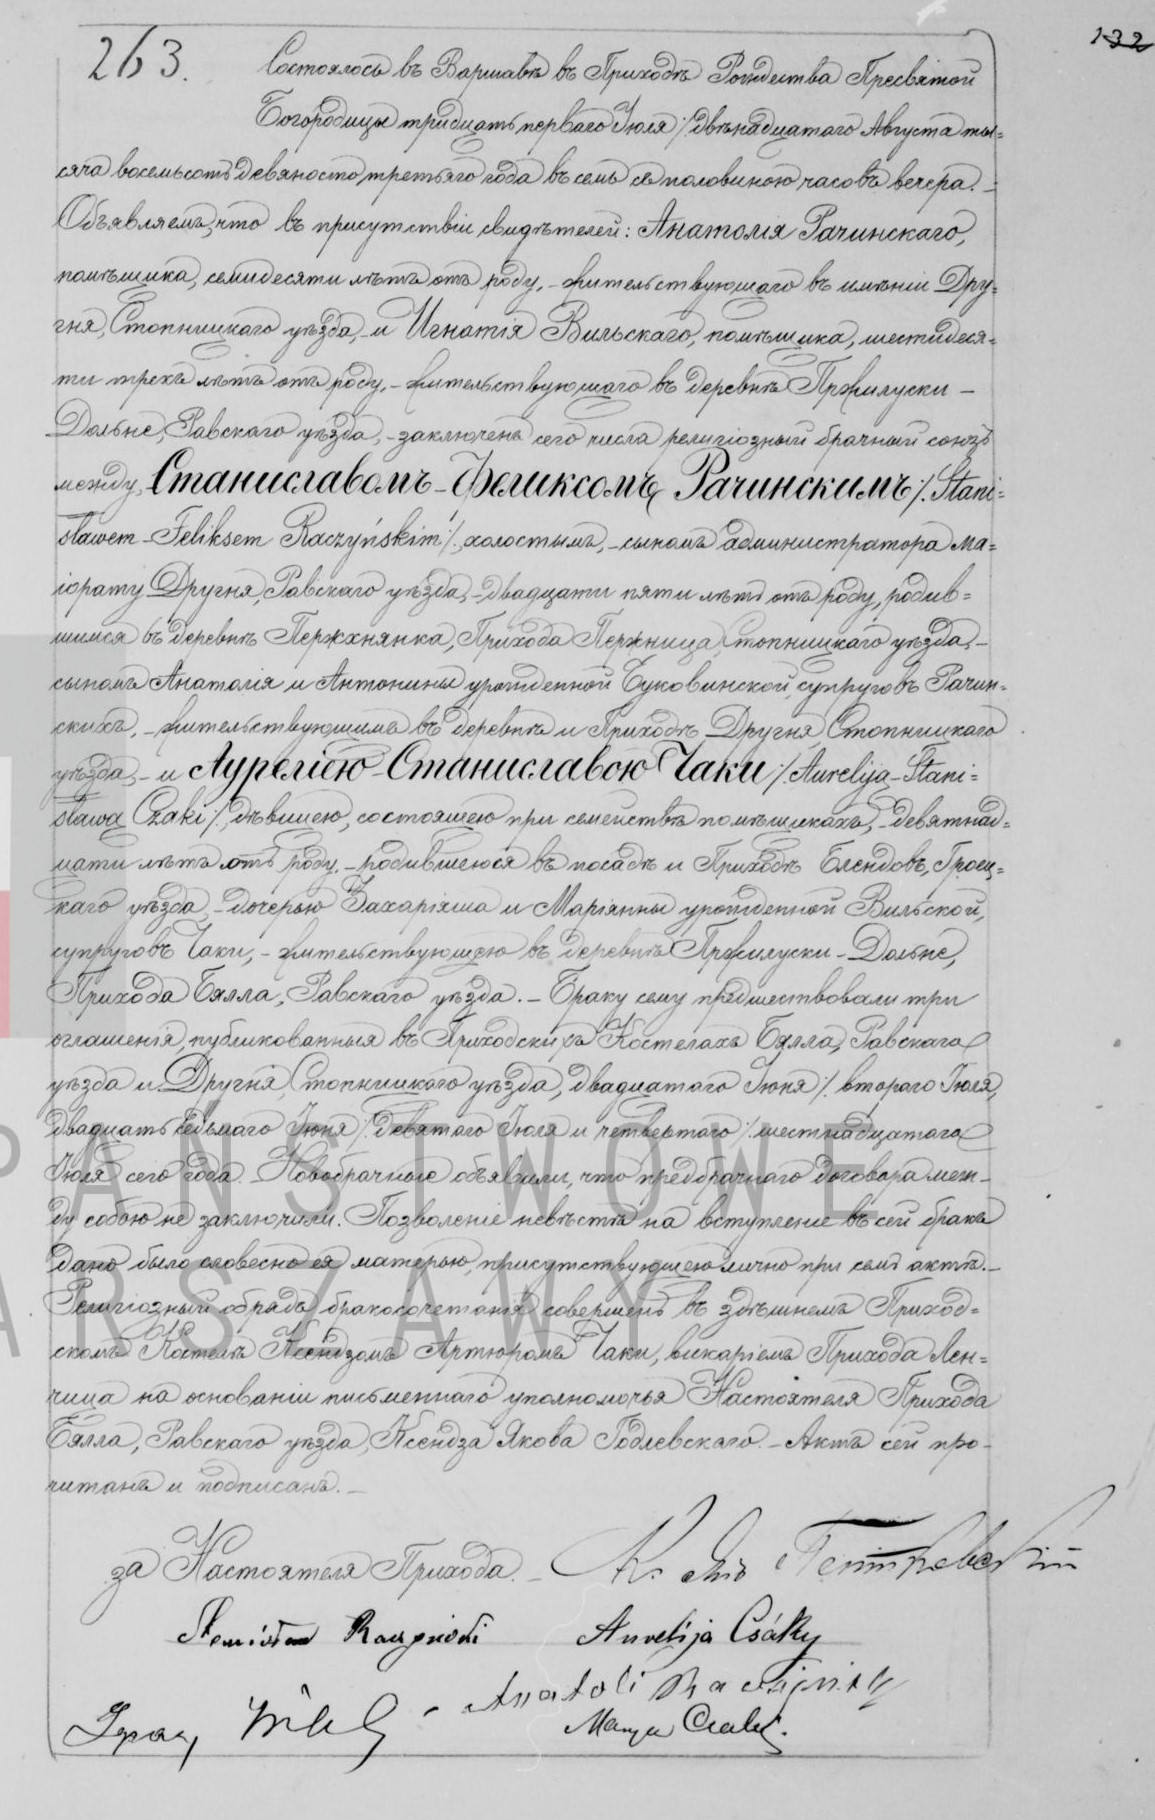 132
263. Состоялось въ Варшавѣ въ Приходѣ Рождества Пресвятой
Богородицы тридцать перваго Іюля /: двѣнадцатаго Августа ты=
сяча восемьсотъ девяносто третьяго года въ семь съ половиною часовъ вечера. –
Объявляемъ, что въ присутствіи свидѣтелей: Анатолія Рачинскаго,
помѣщика, семидесяти лѣтъ отъ роду, – жительствующаго въ имѣніи Дру=
гня, Стопницкаго уѣзда, – и Игнатія Вильскаго, помѣщика, шестидеся=
ти трехъ лѣтъ отъ роду, – жительствующаго въ деревнѣ Пржилуски –
Дольне, Равскаго уѣзда, – заключенъ сего числа религіозный брачный союзъ
между Станиславомъ-Феликсомъ Рачинскимъ /: Stani=
sławem-Feliksem Raczyńskim :/, холостымъ, – сыномъ администратора ма=
іорату Другня, Равскаго уѣзда, – двадцати пяти лѣтъ отъ роду, родив=
шимся въ деревнѣ Пержхнянка, Прихода Пержница, Стопницкаго уѣзда, –
сыномъ Анатолія и Антонины урожденной Буковинской, супруговъ Рачин=
скихъ, – жительствующимъ въ деревнѣ и Приходѣ Другня, Стопницкаго
уѣзда, – и Аурелією-Станиславою Чаки /: Aurelija-Stani=
sława Czaki :/, дѣвицею, состоящею при семействѣ помѣщикахъ, – девятнад=
цати лѣтъ отъ роду, – родившеюся въ посадѣ и Приходѣ Блендовъ, Гроец=
каго уѣзда, – дочерью Захаріяша и Маріянны урожденной Вильской,
супруговъ Чаки, – жительствующею въ деревнѣ Пржилуски-Дольне,
Прихода Бялла, Равскаго уѣзда. – Браку сему предшествовали три
оглашенія, публикованныя въ Приходскихъ Костелахъ Бялла, Равскаго
уѣзда и Другня, Стопницкаго уѣзда, двадцатаго Іюня /: втораго Іюля,
двадцать седьмаго Іюня /: девятаго Іюля и четвертаго /: шестнадцатаго
Іюля сего года. Новобрачные объявили, что предбрачнаго договора меж–
ду собою не заключили. Позволеніе невѣстѣ на вступленіе въ сей бракъ
дано было словесно ея матерью, присутствующею лично при семъ актѣ. –
Религіозный обрядъ бракосочетанія совершенъ въ здѣшнемъ Приход=
скомъ Костелѣ Ксендзомъ Артюромъ Чаки, викаріемъ Прихода Лен=
чица на основаніи письменнаго уполномочья Настоятеля Прихода
Бялла, Равскаго уѣзда, Ксендза Якова Годлевскаго. – Актъ сей про–
читанъ и подписанъ. –
за Настоятеля Прихода. –
Stanisław Raczyński Aurelija Csáky
Anatoli Raczyński
Ignacy Wilski
Marya Csaky.
PAŃSTWOWE
WARSZAWY